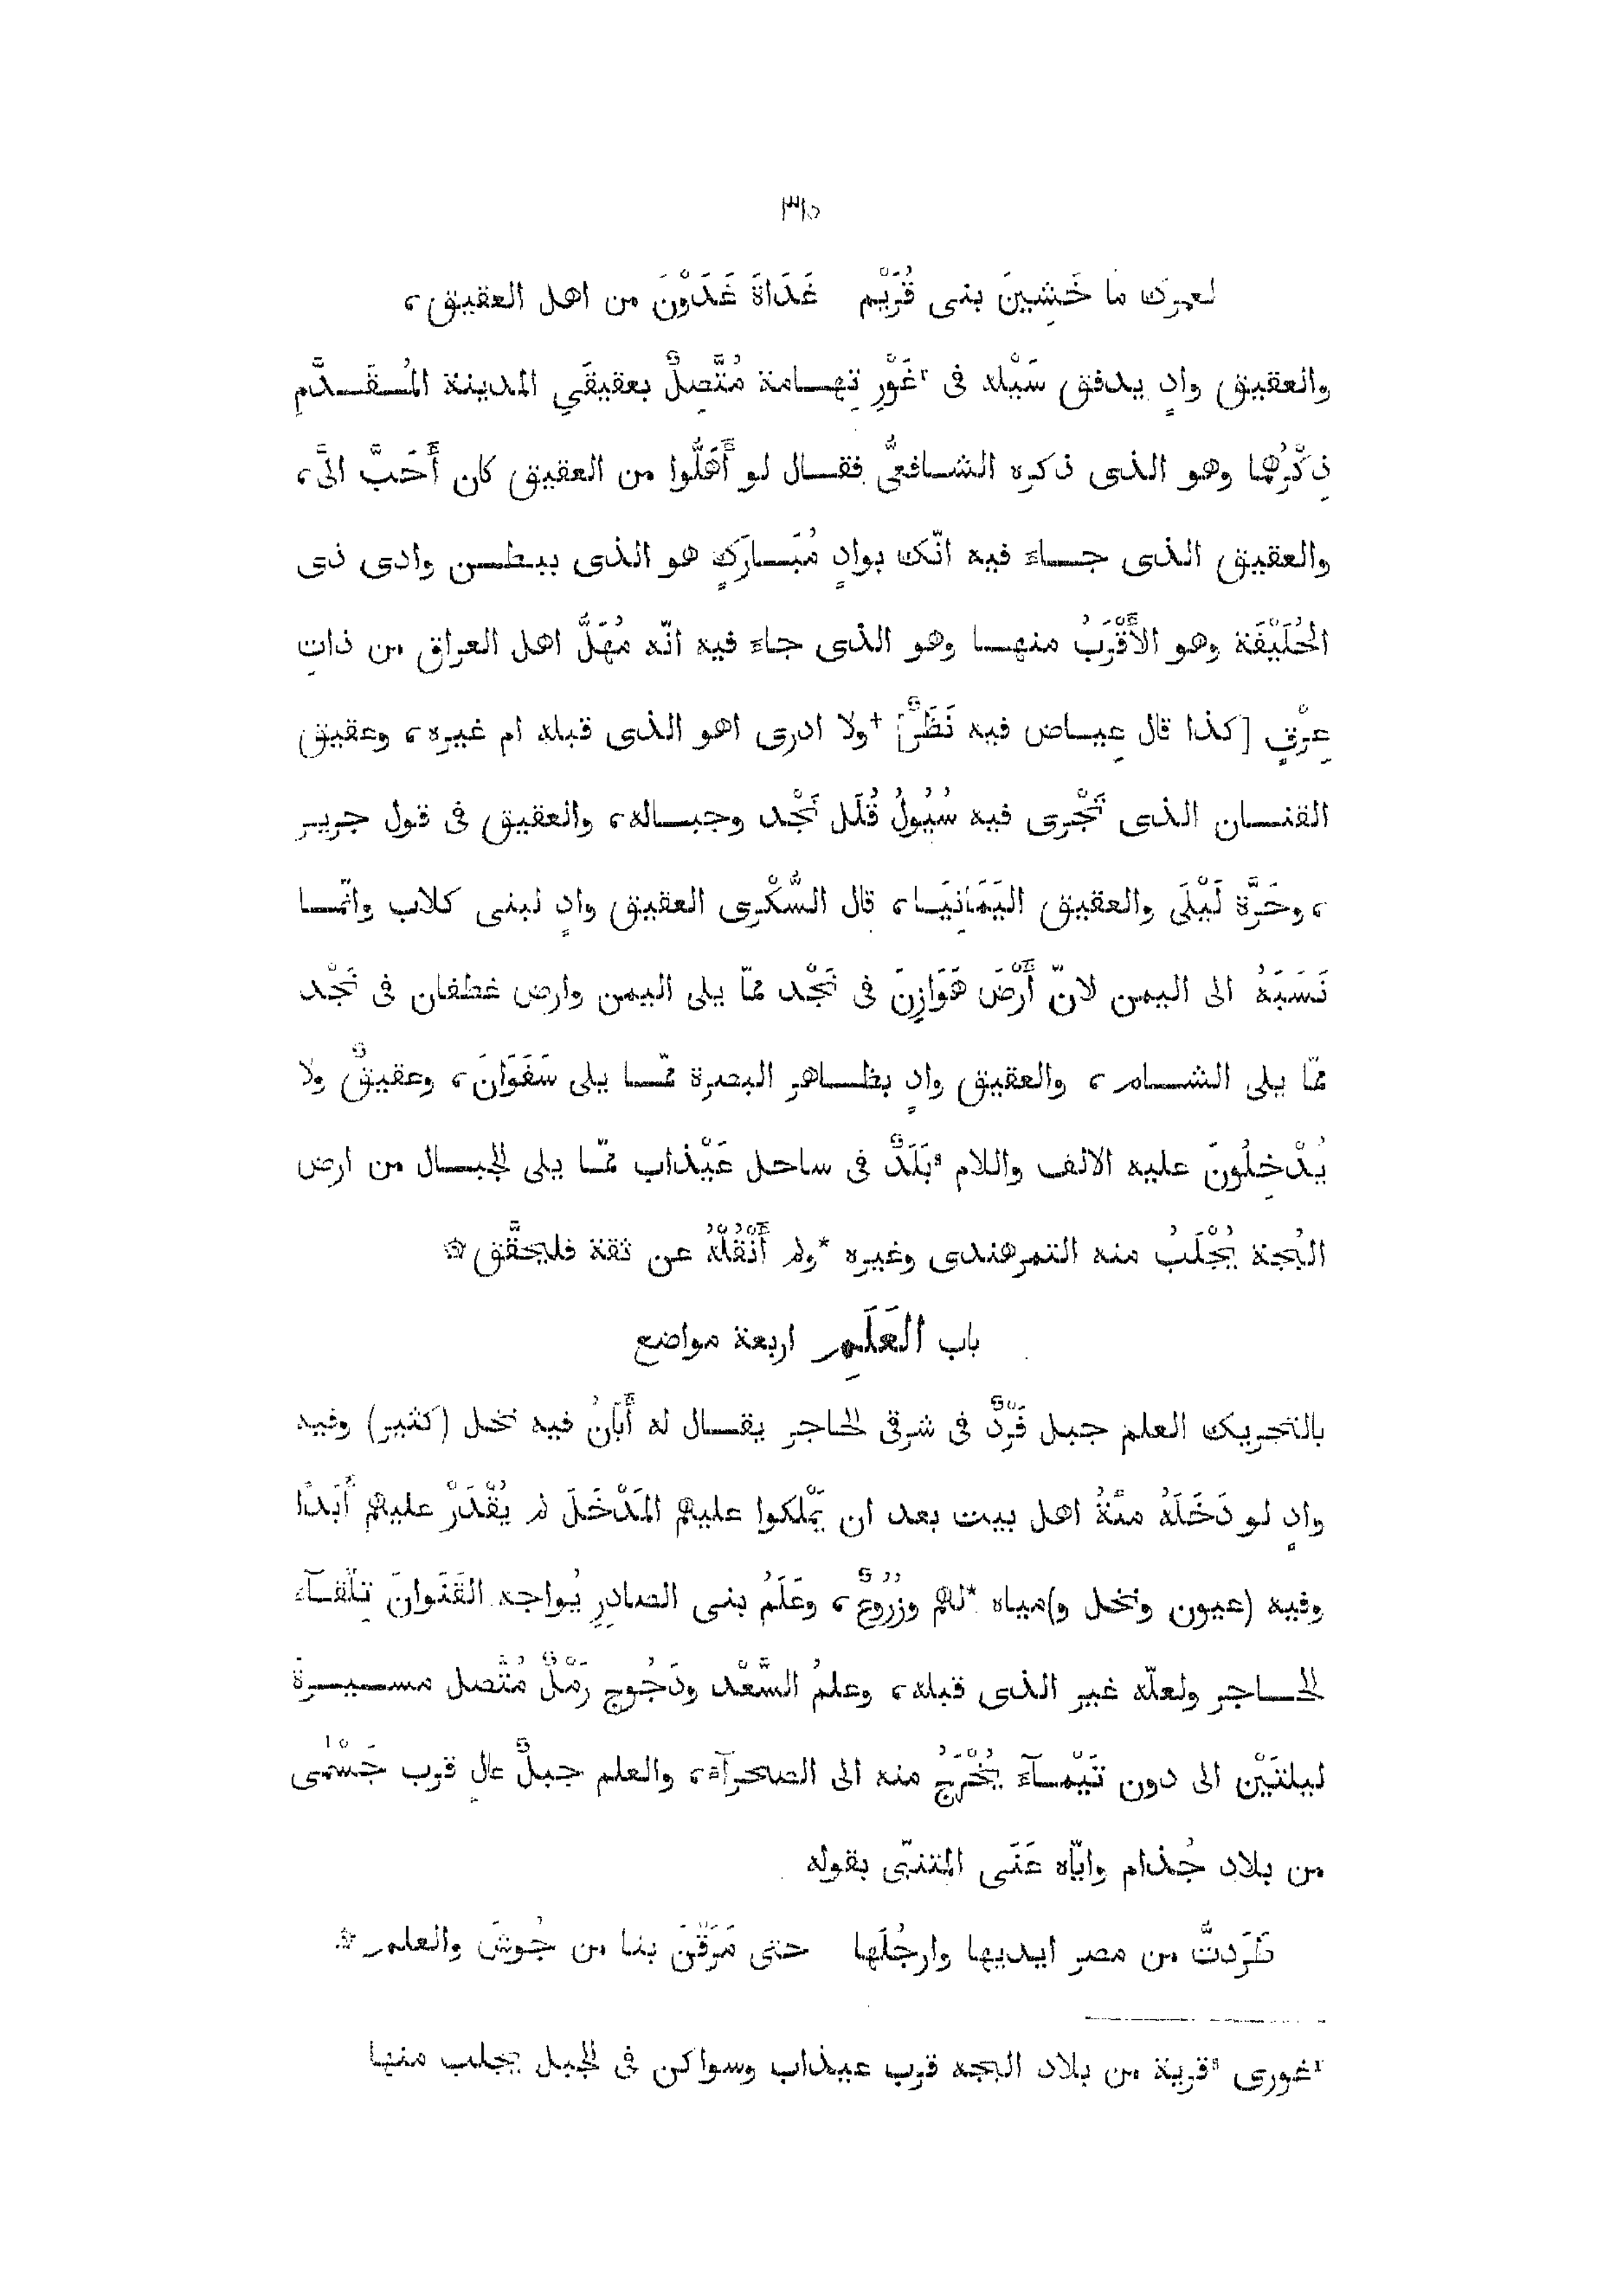 ٣١٥
لعمرك ما خَشِينَ بنى قُرَيْم غَدَاةَ غَدَوْنَ من اهل العقيق،
والعقيق وادٍ يدفق سَيْله فى ¹غَوْرِ تِهامة مُتَّصِلٌ بعقيقَيِ المدينة المُقَدَّمِ
ذِكْرُهُما وهو الذى ذكره الشافعىُّ فقال لو أَهَلُّوا من العقيق كان أَحَبَّ الىَّ،
والعقيق الذى جاء فيه انّك بوادٍ مُبَارَكٍ هو الذى ببطن وادى ذى
الحُلَيْفَة وهو الأَقْرَبُ منها وهو الذى جاء فيه انّه مُهَلُّ اهل العراق من ذاتِ
عِرْقٍ [كذا قال عِياض فيه نَظَرٌ] †ولا ادرى اهو الذى قبله ام غيره، وعقيق
القنان الذى تَجْرى فيه سُيُولُ قُلَل نَجْد وجباله، والعقيق فى قول جرير
، وحَرَّة لَيْلَى والعقيق اليَمَانِيَا، قال السُّكْرى العقيق وادٍ لبنى كلاب وانّما
نَسَبَهُ الى اليمن لانّ أَرْضَ هَوَازِنَ فى نَجْد ممّا يلى اليمن وارض غطفان فى نَجْد
ممّا يلى الشام، والعقيق وادٍ بظاهر البصرة ممّا يلى سَفَوَانَ، وعقيقٌ ولا
يُدْخِلُونَ عليه الالف واللام ⁹بَلَدٌ فى ساحل عَيْذاب ممّا يلى الجبال من ارض
البُجة يُجْلَبُ منه التمرهندى وغيره *ولم أَنْقُلْهُ عن ثقة فليحقَّق ۞
باب العَلَمِ اربعة مواضع
بالتحريك العلم جبل فَرْدٌ فى شرقى الحاجر يقال له أَبَانُ فيه نخل (كثير) وفيه
وادٍ لو دَخَلَهُ مئةُ اهل بيت بعد ان يَمْلكوا عليهم المَدْخَلَ لم يُقْدَرْ عليهم أَبَدًا
وفيه (عيون ونخل و)مياه *لهم وزُرُوعٌ، وعَلَمُ بنى الصادِرِ يُواجه القَنَوانَ تِلْقآء
الحاجر ولعلّه غير الذى قبله، وعلمُ السَّعْد ودَجُوج رَمْلٌ مُتَّصل مسيرةَ
ليلتَيْن الى دون تَيْمآءَ يُخْرَجُ منه الى الصحرآء، والعلم جبلٌ عالٍ قرب حَسْمى
من بلاد جُذام وايّاه عَنَى المتنبّى بقوله
طَرَدتُّ من مصر ايديها وارجُلَها حتى مَرَقْنَ بنا من جُوشَ والعلم ۞
¹غورى ⁹قرية من بلاد البجه قرب عيذاب وسواكن فى الجبل يجلب منها